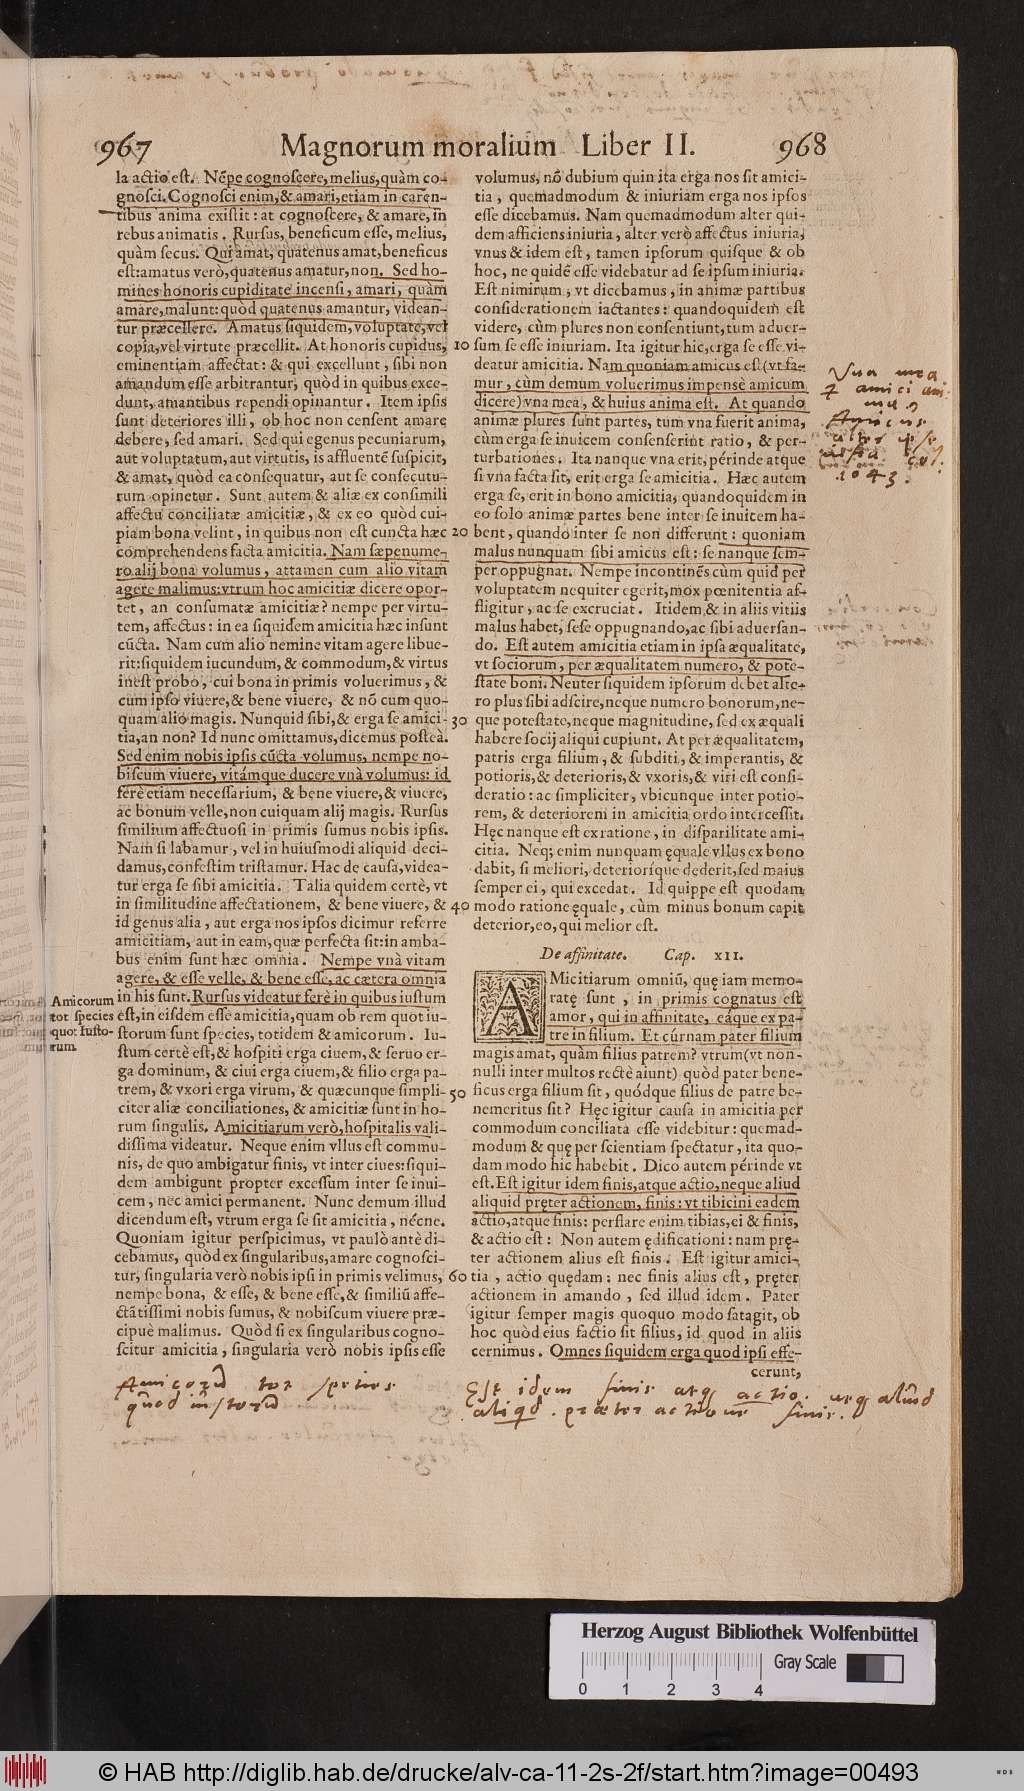 967
Magnorum moralium Liber II.
968
la actio est. Nẽpe cognoscere, melius, quàm co-
gnosci. Cognosci enim, & amari, etiam in caren-
tibus anima existit: at cognoscere, & amare, in
rebus animatis. Rursus, beneficum esse, melius,
quàm secus. Qui amat, quatenus amat, beneficus
est: amatus verò, quatenus amatur, non. Sed ho-
mines honoris cupiditate incensi, amari, quàm
amare, malunt: quòd quatenus amantur, videan-
tur præcellere. Amatus siquidem, voluptate, vel
copia, vel virtute præcellit. At honoris cupidus, 10
eminentiam affectat: & qui excellunt, sibi non
amandum esse arbitrantur, quòd in quibus exce-
dunt, amantibus rependi opinantur. Item ipsis
sunt deteriores illi, ob hoc non censent amare
debere, sed amari. Sed qui egenus pecuniarum,
aut voluptatum, aut virtutis, is affluentẽ suspicit,
& amat, quòd ea consequatur, aut se consecutu-
rum opinetur. Sunt autem & aliæ ex consimili
affectu conciliatæ amicitiæ, & ex eo quòd cui-
piam bona velint, in quibus non est cuncta hæc 20
comprehendens facta amicitia. Nam sæpenume-
ro alij bona volumus, attamen cum alio vitam
agere malimus: vtrum hoc amicitiæ dicere opor-
tet, an consumatæ amicitiæ? nempe per virtu-
tem, affectus: in ea siquidem amicitia hæc insunt
cũcta. Nam cum alio nemine vitam agere libue-
rit: siquidem iucundum, & commodum, & virtus
inest probo, cui bona in primis voluerimus, &
cum ipso viuere, & bene viuere, & nõ cum quo-
quam alio magis. Nunquid sibi, & erga se amici- 30
tia, an non? Id nunc omittamus, dicemus posteà.
Sed enim nobis ipsis cũcta volumus, nempe no-
biscum viuere, vitámque ducere vnà volumus: id
ferè etiam necessarium, & bene viuere, & viuere,
ac bonum velle, non cuiquam alij magis. Rursus
similium affectuosi in primis sumus nobis ipsis.
Nam si labamur, vel in huiusmodi aliquid deci-
damus, confestim tristamur. Hac de causa, videa-
tur erga se sibi amicitia. Talia quidem certè, vt
in similitudine affectationem, & bene viuere, & 40
id genus alia, aut erga nos ipsos dicimur referre
amicitiam, aut in eam, quæ perfecta sit: in amba-
bus enim sunt hæc omnia. Nempe vnà vitam
agere, & esse velle, & bene esse, ac cætera omnia
in his sunt. Rursus videatur ferè in quibus iustum
est, in eisdem esse amicitia, quam ob rem quot iu-
storum sunt species, totidem & amicorum. Iu-
stum certè est, & hospiti erga ciuem, & seruo er-
ga dominum, & ciui erga ciuem, & filio erga pa-
trem, & vxori erga virum, & quæcunque simpli- 50
citer aliæ conciliationes, & amicitiæ sunt in ho-
rum singulis. Amicitiarum verò, hospitalis vali-
dissima videatur. Neque enim vllus est commu-
nis, de quo ambigatur finis, vt inter ciues: siqui-
dem ambigunt propter excessum inter se inui-
cem, nec amici permanent. Nunc demum illud
dicendum est, vtrum erga se sit amicitia, nécne.
Quoniam igitur perspicimus, vt paulò antè di-
cebamus, quòd ex singularibus, amare cognosci-
tur, singularia verò nobis ipsi in primis velimus, 60
nempe bona, & esse, & bene esse, & similiũ affe-
ctãtissimi nobis sumus, & nobiscum viuere præ-
cipuè malimus. Quòd si ex singularibus cogno-
scitur amicitia, singularia verò nobis ipsis esse
Amicorum
tot species
quot Iusto-
rum.
volumus, nõ dubium quin ita erga nos sit amici-
tia, quemadmodum & iniuriam erga nos ipsos
esse dicebamus. Nam quemadmodum alter qui-
dem afficiens iniuria, alter verò affectus iniuria,
vnus & idem est, tamen ipsorum quisque & ob
hoc, ne quidẽ esse videbatur ad se ipsum iniuria.
Est nimirum, vt dicebamus, in animæ partibus
considerationem iactantes: quandoquidem est
videre, cùm plures non consentiunt, tum aduer-
sum se esse iniuriam. Ita igitur hic, erga se esse vi-
deatur amicitia. Nam quoniam amicus est (vt fa-
mur, cùm demum voluerimus impensè amicum
dicere) vna mea, & huius anima est. At quando
animæ plures sunt partes, tum vna fuerit anima,
cùm erga se inuicem consenserint ratio, & per-
turbationes. Ita nanque vna erit, périnde atque
si vna facta sit, erit erga se amicitia. Hæc autem
erga se, erit in bono amicitia, quandoquidem in
eo solo animæ partes bene inter se inuicem ha-
bent, quando inter se non differunt: quoniam
malus nunquam sibi amicus est: se nanque sem-
per oppugnat. Nempe incontinẽs cùm quid per
voluptatem nequiter egerit, mox pœnitentia af-
fligitur, ac se excruciat. Itidem & in aliis vitiis
malus habet, sese oppugnando, ac sibi aduersan-
do. Est autem amicitia etiam in ipsa æqualitate,
vt sociorum, per æqualitatem numero, & pote-
state boni. Neuter siquidem ipsorum debet alte-
ro plus sibi adscire, neque numero bonorum, ne-
que potestate, neque magnitudine, sed ex æquali
habere socij aliqui cupiunt. At per æqualitatem,
patris erga filium, & subditi, & imperantis, &
potioris, & deterioris, & vxoris, & viri est consi-
deratio: ac simpliciter, vbicunque inter potio-
rem, & deteriorem in amicitia ordo intercessit.
Hęc nanque est ex ratione, in disparilitate ami-
citia. Neq; enim nunquam ęquale vllus ex bono
dabit, si meliori, deteriorique dederit, sed maius
semper ei, qui excedat. Id quippe est quodam
modo ratione ęquale, cùm minus bonum capit
deterior, eo, qui melior est.
De affinitate. Cap. XII.
AMicitiarum omniũ, quę iam memo-
ratę sunt, in primis cognatus est
amor, qui in affinitate, eáque ex pa-
tre in filium. Et cúrnam pater filium
magis amat, quàm filius patrem? vtrum (vt non-
nulli inter multos rectè aiunt) quòd pater bene-
ficus erga filium sit, quódque filius de patre be-
nemeritus sit? Hęc igitur causa in amicitia per
commodum conciliata esse videbitur: quemad-
modum & quę per scientiam spectatur, ita quo-
dam modo hic habebit. Dico autem périnde vt
est. Est igitur idem finis, atque actio, neque aliud
aliquid pręter actionem, finis: vt tibicini eadem
actio, atque finis: perflare enim tibias, ei & finis,
& actio est: Non autem ędificationi: nam prę-
ter actionem alius est finis. Est igitur amici-
tia, actio quędam: nec finis alius est, pręter
actionem in amando, sed illud idem. Pater
igitur semper magis quoquo modo satagit, ob
hoc quòd eius factio sit filius, id quod in aliis
cernimus. Omnes siquidem erga quod ipsi effe-
cerunt,
Vna mea
amici ani
Amicus
alter ipse
1043.
Amicorũ tot species
quod iustorũ
Est idem finis atq actio. neq aliud
aliqd. præter actione finis.
Herzog August Bibliothek Wolfenbüttel
Gray Scale
0 1 2 3 4
© HAB http://diglib.hab.de/drucke/alv-ca-11-2s-2f/start.htm?image=00493